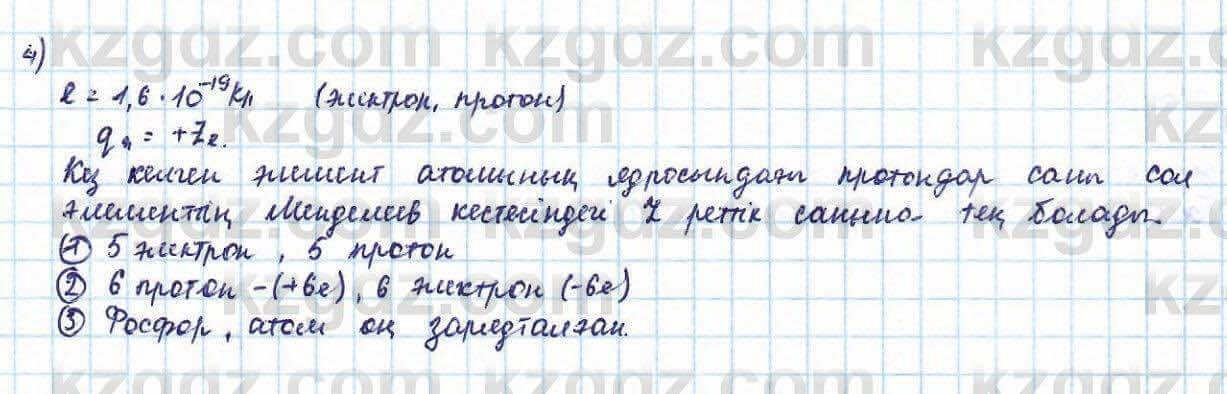 kzgdz.com kzgdz.com
4)
e = 1,6 · 10⁻¹⁹ Кл (электрон, протон)
qя = +Ze.
Кез келген элемент атомының ядросындағы протондар саны сол
элементтің Менделеев кестесіндегі Z реттік санына тең болады.
① 5 электрон, 5 протон
② 6 протон -(+6e), 6 электрон (-6e)
③ Фосфор, атом оң зарядталған.